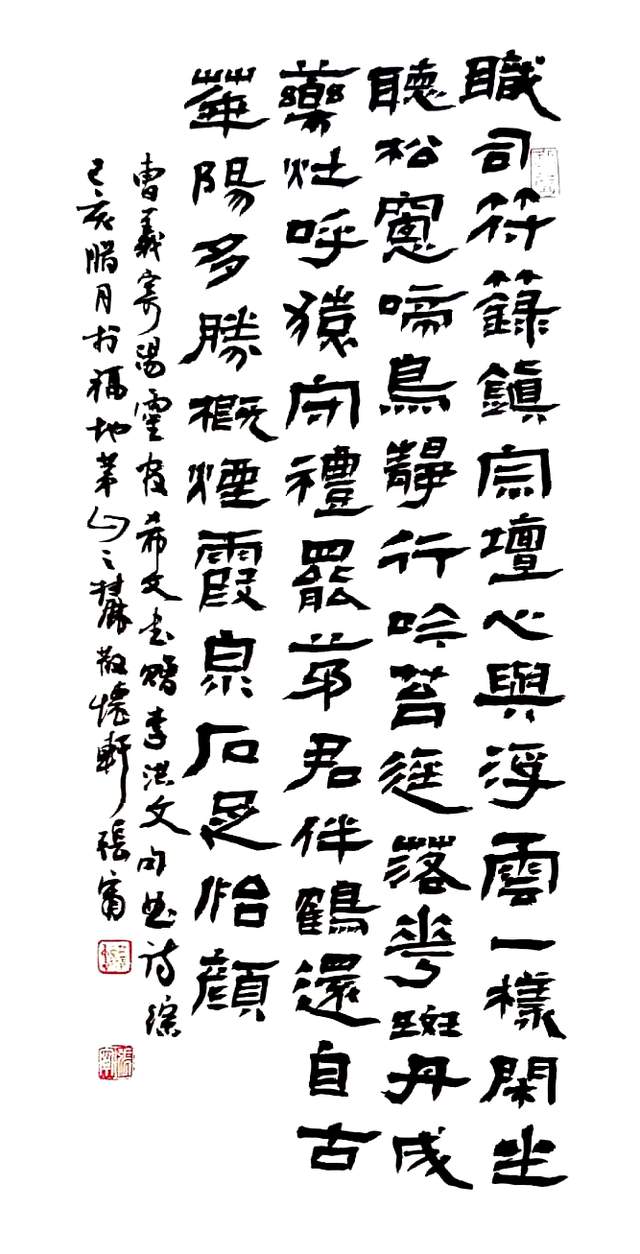 職司符籙鎮宗壇心與浮雲一樣閑坐
聽松窗啼鳥靜行吟苔逕落花斑丹成
藥灶呼猿守禮罷茅君伴鶴還自古
華陽多勝概煙霞泉石足怡顏
曹義寄湯霍希文贈李洪文句曲诗综
己亥腊月於福地茅山之麓散懷軒張甯